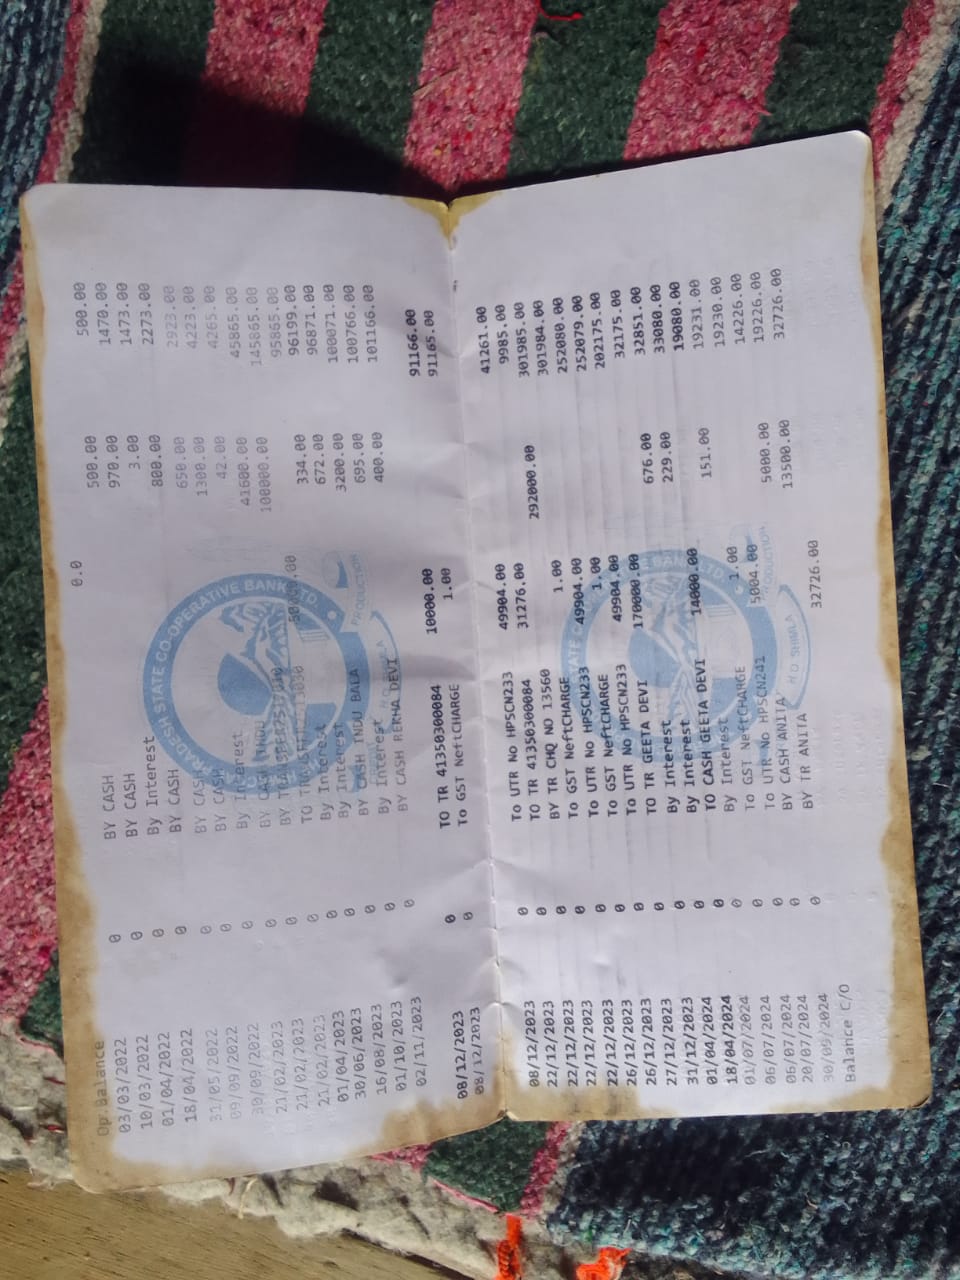 Op.Balance 0.0
03/03/2022 0 BY CASH 500.00 500.00
10/03/2022 0 BY CASH 970.00 1470.00
01/04/2022 0 By Interest 3.00 1473.00
18/04/2022 0 BY CASH 800.00 2273.00
31/05/2022 0 BY CASH 650.00 2923.00
09/09/2022 0 BY CASH 1300.00 4223.00
30/09/2022 0 By Interest 42.00 4265.00
21/02/2023 0 BY CASH INDU 41600.00 45865.00
21/02/2023 0 BY 100000.00 145865.00
21/02/2023 0 TO 95865.00
01/04/2023 0 By Interest 334.00 96199.00
30/06/2023 0 By Interest 672.00 96871.00
16/08/2023 0 BY CASH INDU BALA 3200.00 100071.00
01/10/2023 0 By Interest 695.00 100766.00
02/11/2023 0 BY CASH REKHA DEVI 400.00 101166.00
08/12/2023 0 TO TR 41350300084 10000.00 91166.00
08/12/2023 0 To GST NeftCHARGE 1.00 91165.00
PRADESH STATE CO-OPERATIVE BANK LTD.
08/12/2023 0 To UTR No HPSCN233 49904.00 41261.00
22/12/2023 0 TO TR 41350300084 31276.00 9985.00
22/12/2023 0 BY TR CHQ NO 13560 292000.00 301985.00
22/12/2023 0 To GST NeftCHARGE 1.00 301984.00
22/12/2023 0 To UTR NO HPSCN233 49904.00 252080.00
26/12/2023 0 To GST NeftCHARGE 1.00 252079.00
26/12/2023 0 To UTR NO HPSCN233 49904.00 202175.00
27/12/2023 0 TO TR GEETA DEVI 170000.00 32175.00
31/12/2023 0 By Interest 676.00 32851.00
01/04/2024 0 By Interest 229.00 33080.00
18/04/2024 0 TO CASH GEETA DEVI 14000.00 19080.00
01/07/2024 0 By Interest 151.00 19231.00
06/07/2024 0 To GST NeftCHARGE 1.00 19230.00
06/07/2024 0 To UTR No HPSCN241 5004.00 14226.00
20/07/2024 0 BY CASH ANITA 5000.00 19226.00
30/09/2024 0 BY TR ANITA 13500.00 32726.00
Balance C/O 32726.00
H O SHIMLA